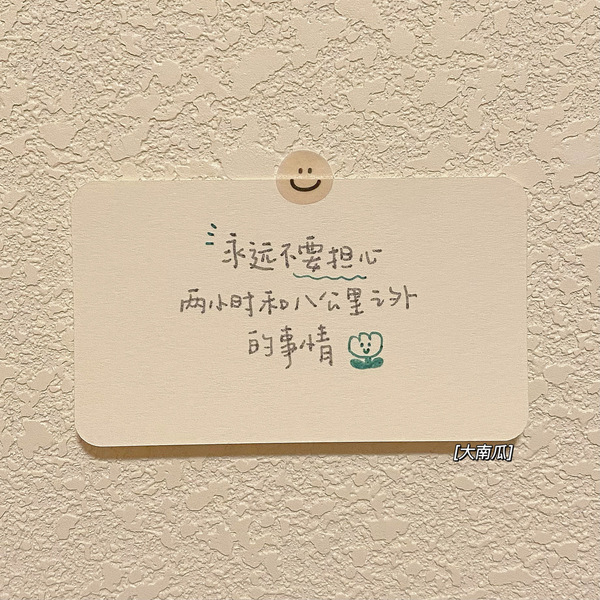 永远不要担心
两小时和八公里之外
的事情
[大南瓜]